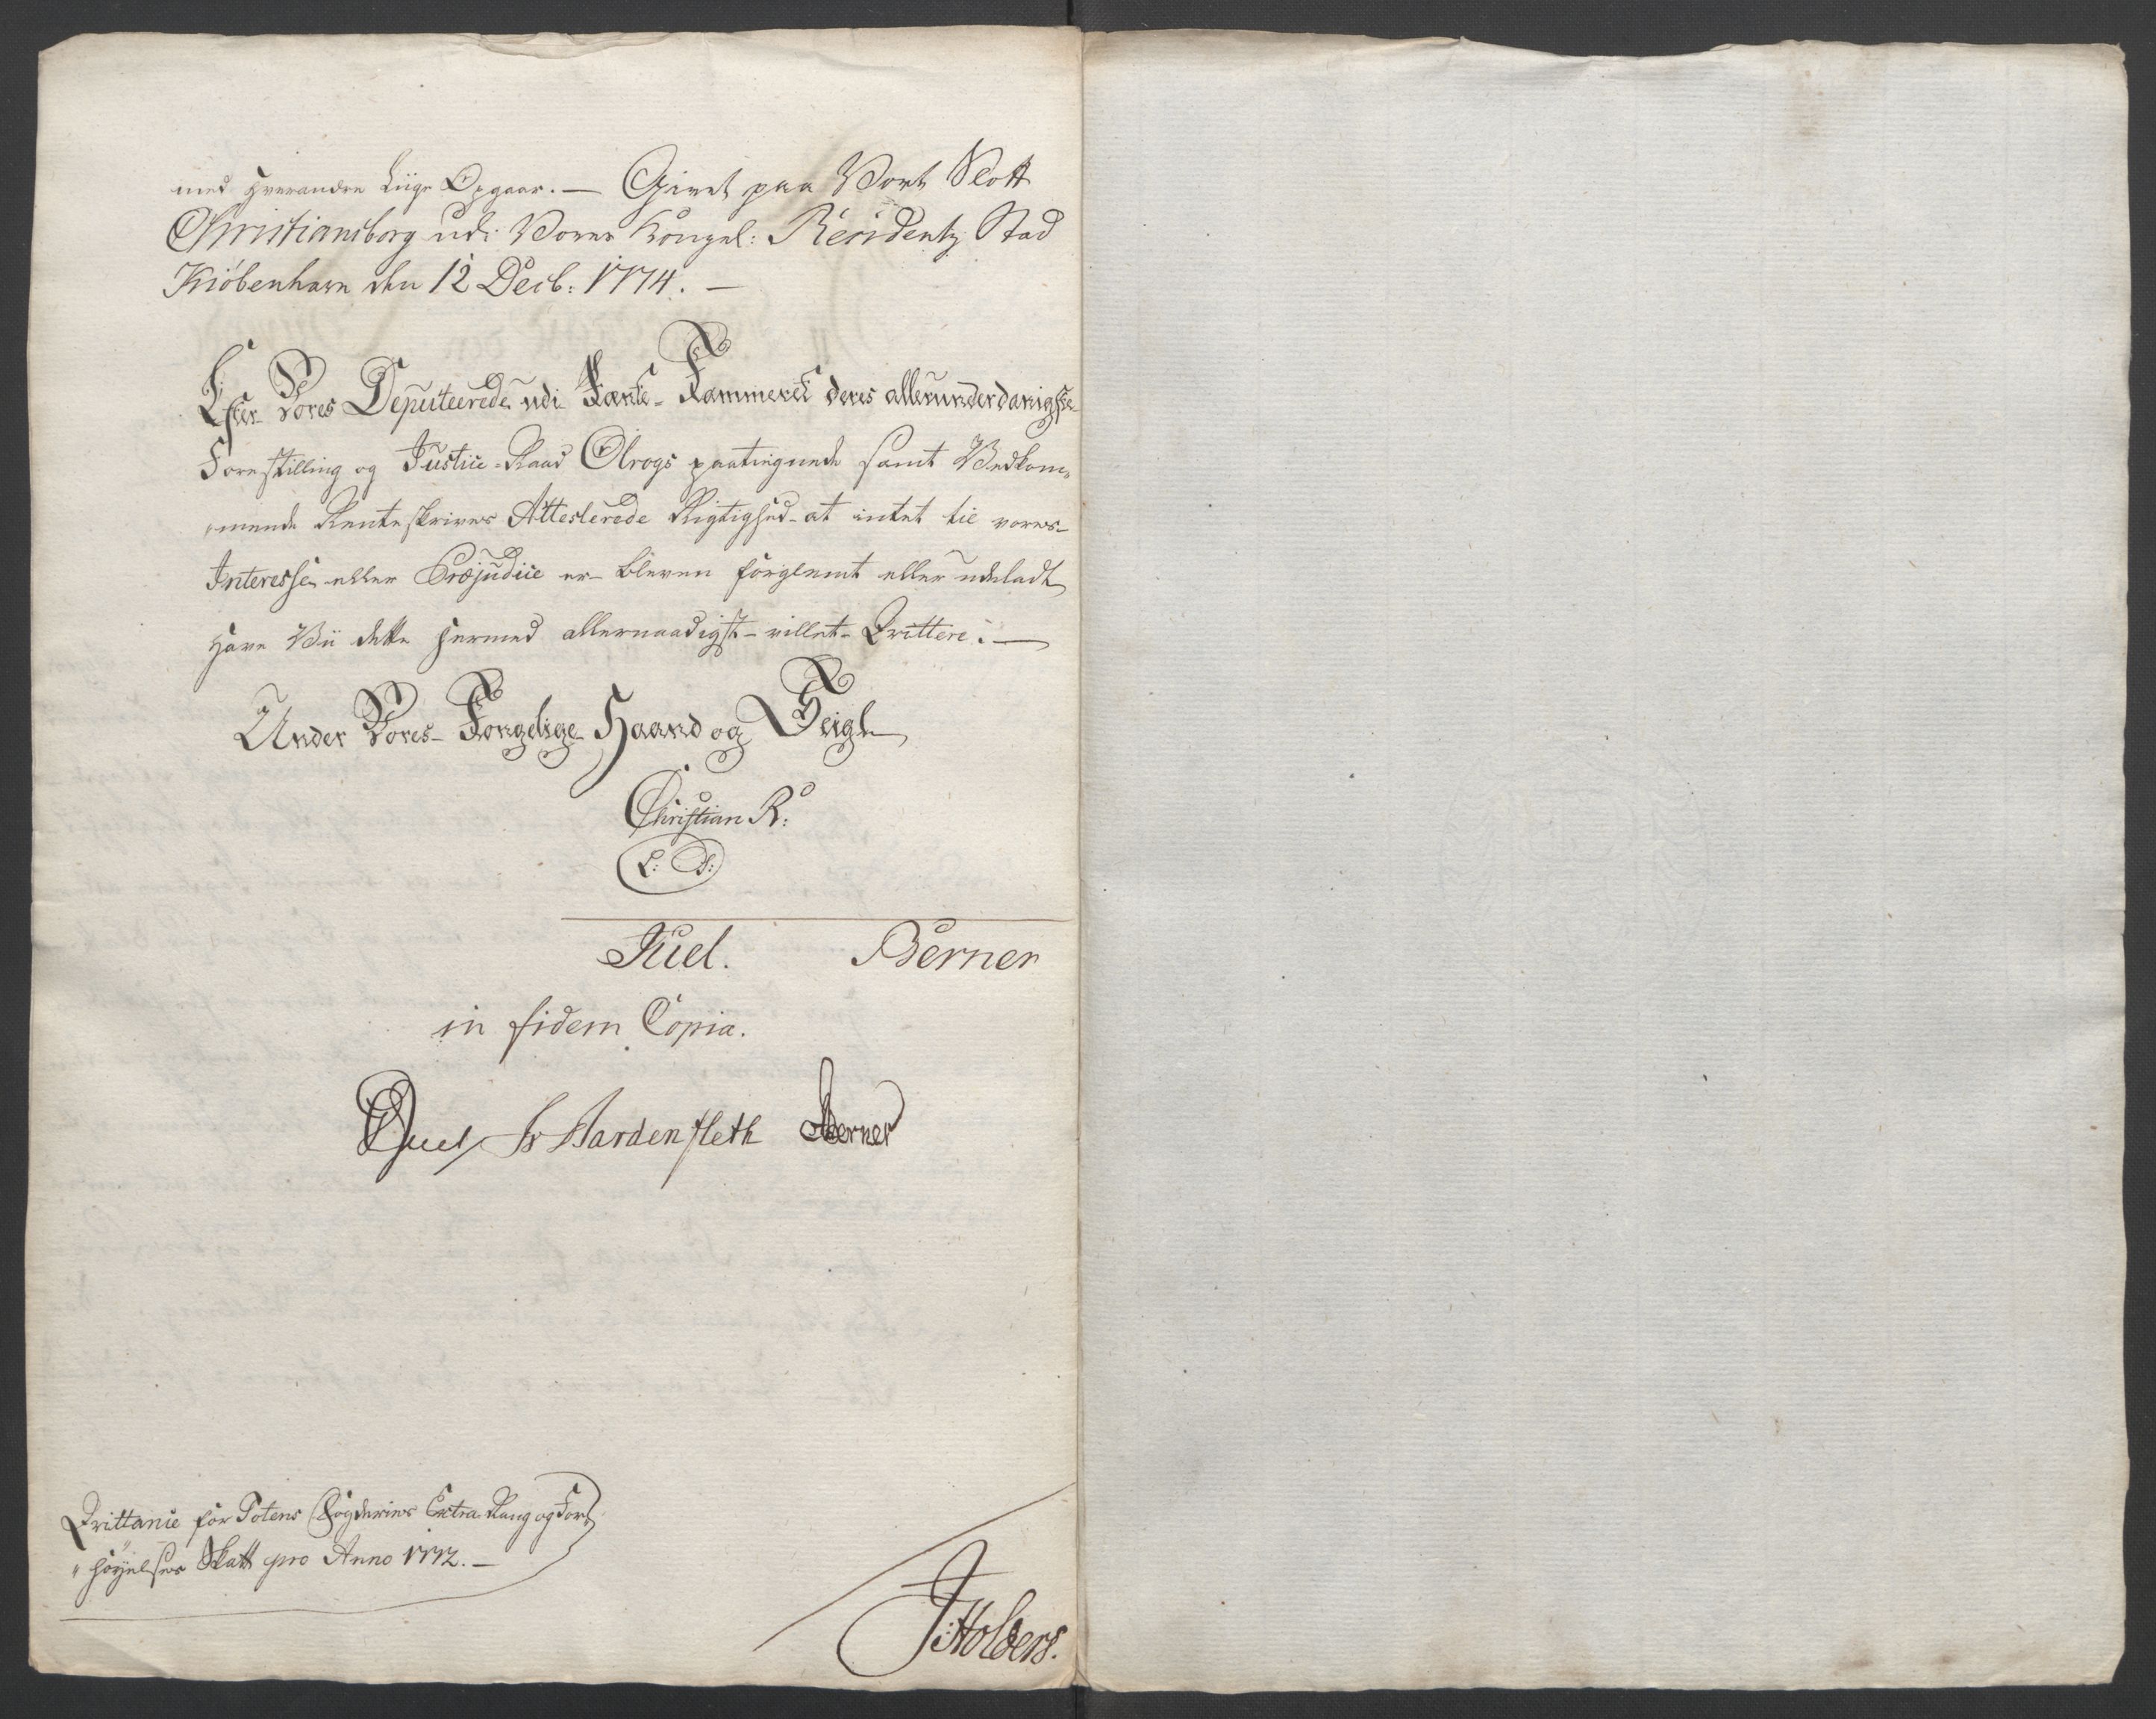 med hverandre liige Opgaar. — Givet paa Vort Slott
Christiansborg udi Vores Kongel: Residentz Stad
Kiöbenhavn den 12 Decb: 1774. —
Efter Vores Deputeerede udi Rente-Kammeret deres allerunderdanigste
Forestilling og Justice-Raad Olrogs paategnede samt Vedkom-
"mende Renteskrivers Attesterede Rigtighed at intet til vores
Interesse eller Præjudice er bleven forglemt eller udeladt
have Vii dette hermed allernaadigst villet Qvittere. —
Under Vores Kongelige Haand og Seigl
Christian R:
L: S:
Juel. Berner
in fidem Copia.
Juel Hardenfleth Berner
Qvittance for Totens Fogderies Extra Rang og For-
"höyelses Skatt pro Anno 1772. —
J: Holbers.